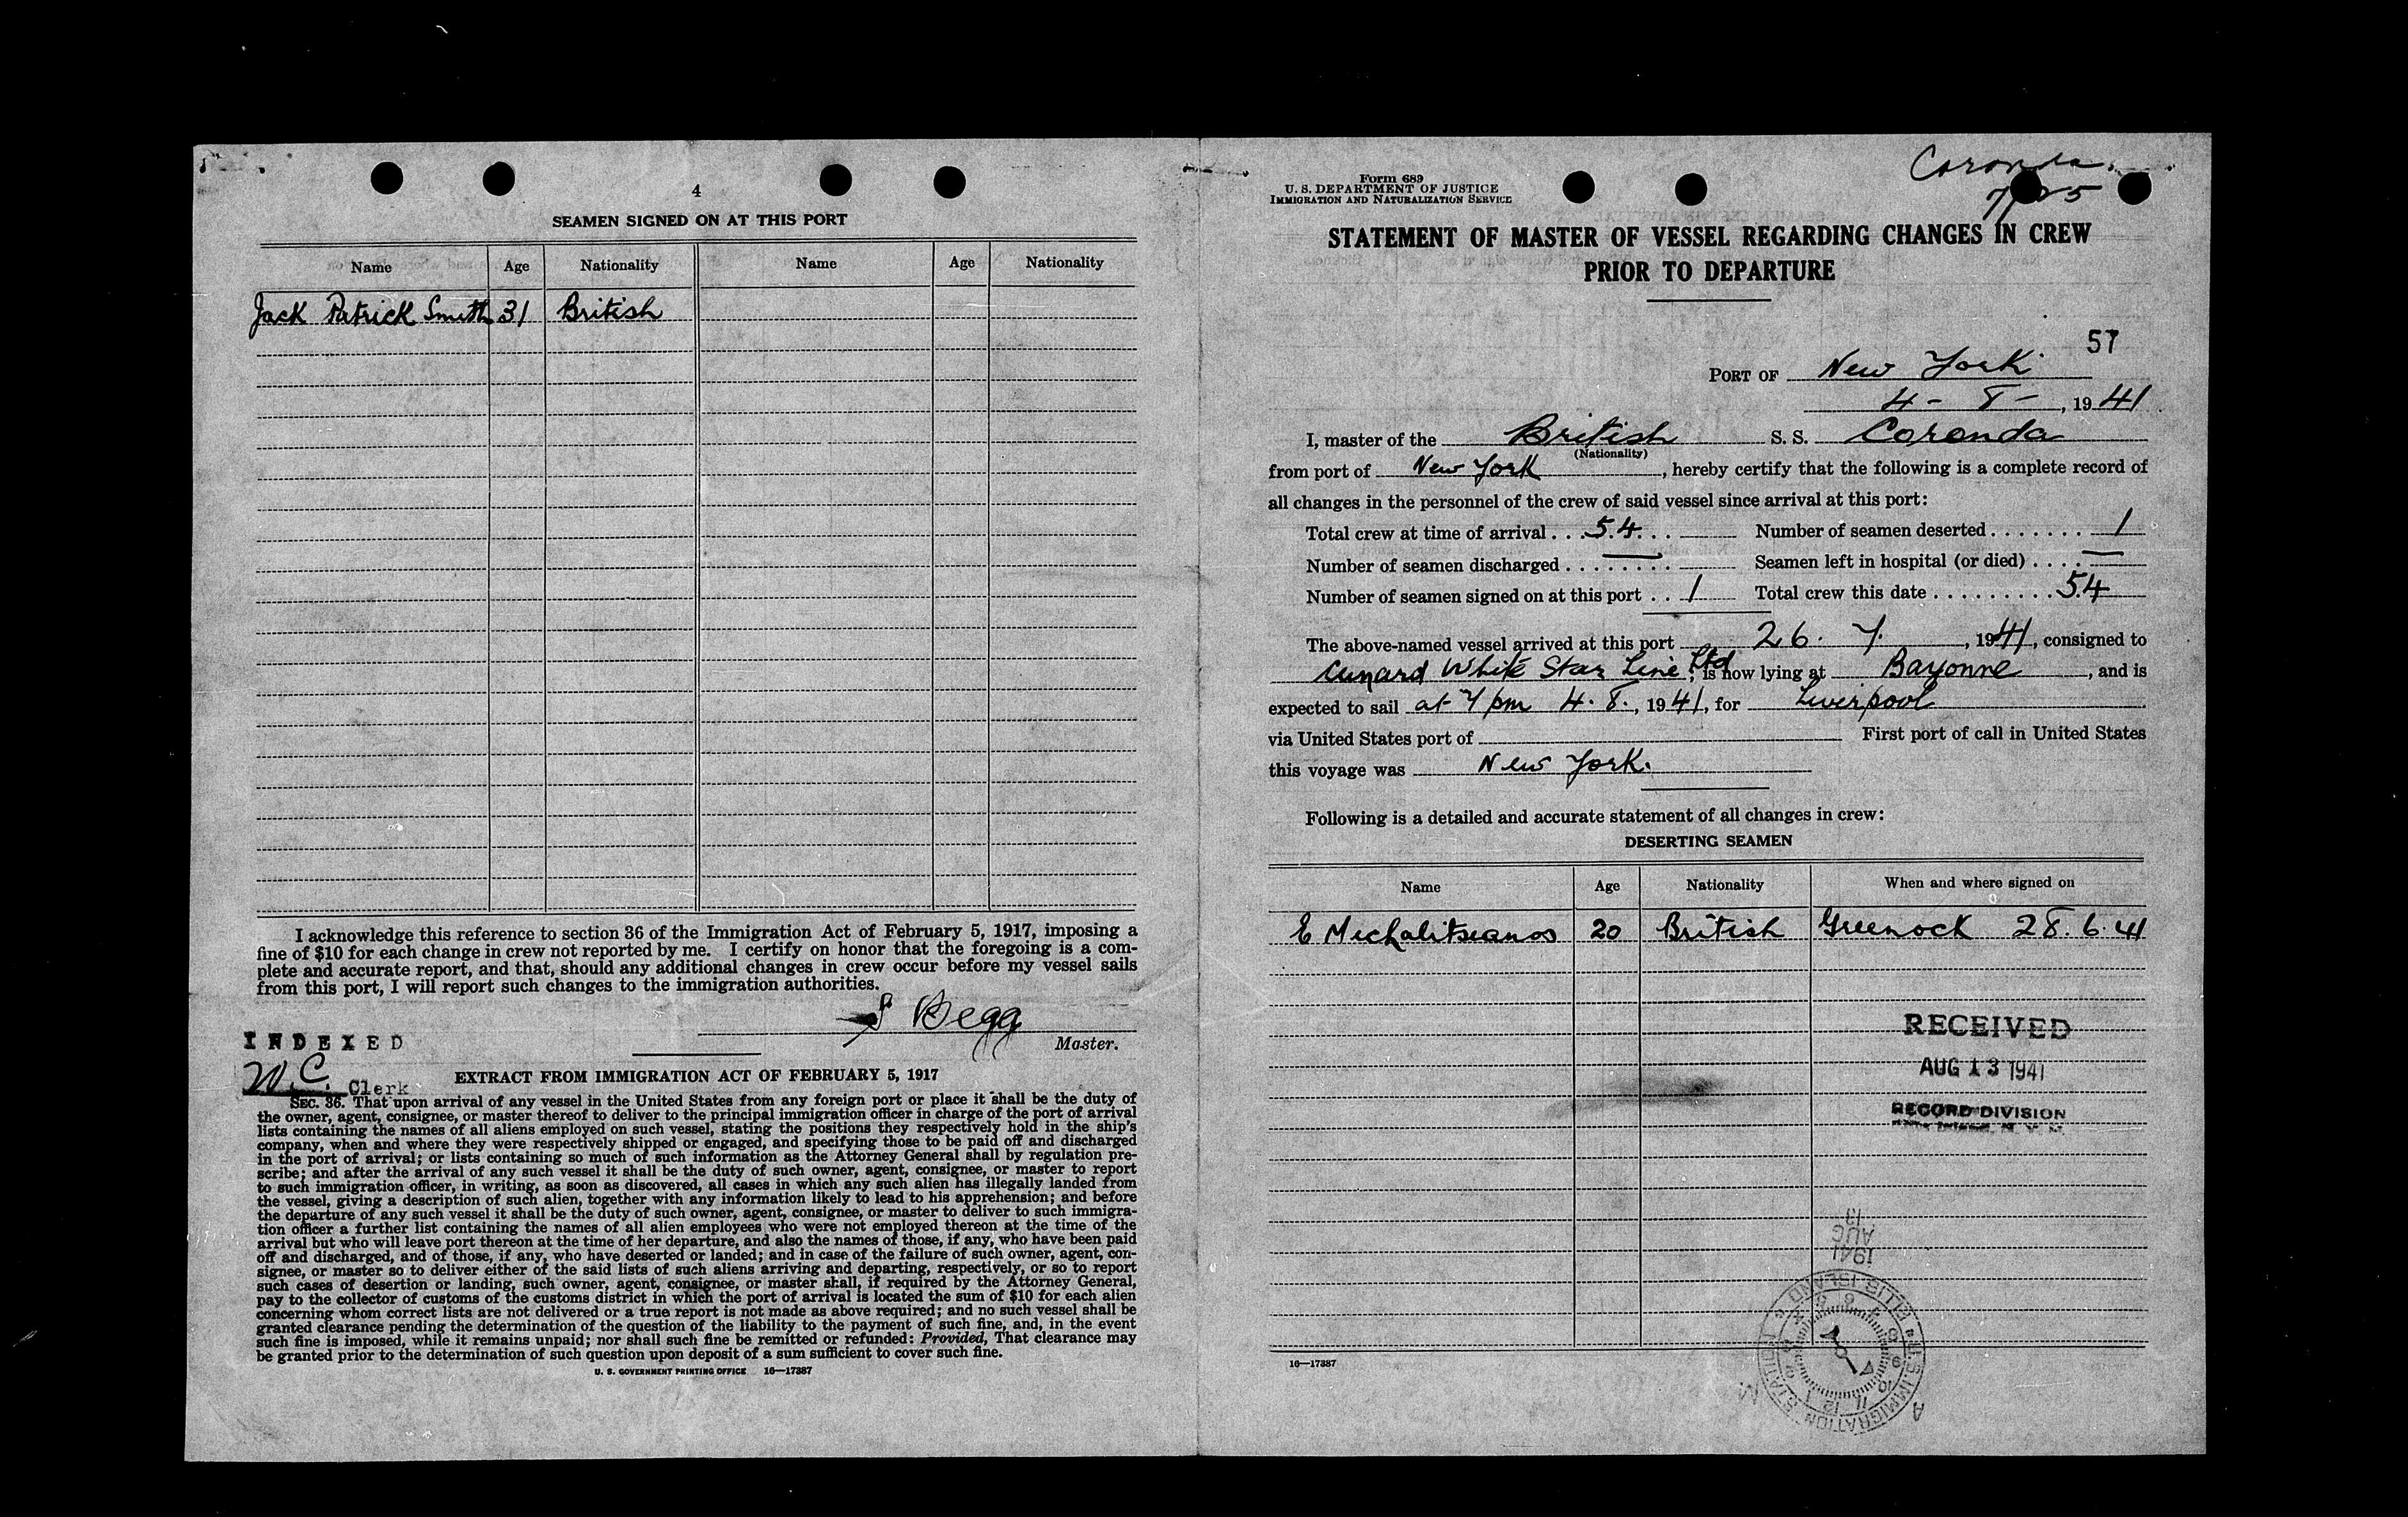 4
SEAMEN SIGNED ON AT THIS PORT
Name Age Nationality Name Age Nationality
Jack Patrick Smith 31 British
I acknowledge this reference to section 36 of the Immigration Act of February 5, 1917, imposing a
fine of $10 for each change in crew not reported by me. I certify on honor that the foregoing is a com-
plete and accurate report, and that, should any additional changes in crew occur before my vessel sails
from this port, I will report such changes to the immigration authorities.
S Begg
Master.
INDEXED
W.C. Clerk
EXTRACT FROM IMMIGRATION ACT OF FEBRUARY 5, 1917
SEC. 36. That upon arrival of any vessel in the United States from any foreign port or place it shall be the duty of
the owner, agent, consignee, or master thereof to deliver to the principal immigration officer in charge of the port of arrival
lists containing the names of all aliens employed on such vessel, stating the positions they respectively hold in the ship's
company, when and where they were respectively shipped or engaged, and specifying those to be paid off and discharged
in the port of arrival; or lists containing so much of such information as the Attorney General shall by regulation pre-
scribe; and after the arrival of any such vessel it shall be the duty of such owner, agent, consignee, or master to report
to such immigration officer, in writing, as soon as discovered, all cases in which any such alien has illegally landed from
the vessel, giving a description of such alien, together with any information likely to lead to his apprehension; and before
the departure of any such vessel it shall be the duty of such owner, agent, consignee, or master to deliver to such immigra-
tion officer a further list containing the names of all alien employees who were not employed thereon at the time of the
arrival but who will leave port thereon at the time of her departure, and also the names of those, if any, who have been paid
off and discharged, and of those, if any, who have deserted or landed; and in case of the failure of such owner, agent, con-
signee, or master so to deliver either of the said lists of such aliens arriving and departing, respectively, or so to report
such cases of desertion or landing, such owner, agent, consignee, or master shall, if required by the Attorney General,
pay to the collector of customs of the customs district in which the port of arrival is located the sum of $10 for each alien
concerning whom correct lists are not delivered or a true report is not made as above required; and no such vessel shall be
granted clearance pending the determination of the question of the liability to the payment of such fine, and, in the event
such fine is imposed, while it remains unpaid; nor shall such fine be remitted or refunded: Provided, That clearance may
be granted prior to the determination of such question upon deposit of a sum sufficient to cover such fine.
U. S. GOVERNMENT PRINTING OFFICE 16—17387
Coronda
Form 689
U. S. DEPARTMENT OF JUSTICE
IMMIGRATION AND NATURALIZATION SERVICE
STATEMENT OF MASTER OF VESSEL REGARDING CHANGES IN CREW
PRIOR TO DEPARTURE
57
PORT OF New York
4 - 8 -, 1941
I, master of the British S. S. Coronda
(Nationality)
from port of New York, hereby certify that the following is a complete record of
all changes in the personnel of the crew of said vessel since arrival at this port:
Total crew at time of arrival . . . 54 . . . Number of seamen deserted . . . . . . . 1
Number of seamen discharged . . . . . . . . — Seamen left in hospital (or died) . . . . —
Number of seamen signed on at this port . . 1 Total crew this date . . . . . . . . . 54
The above-named vessel arrived at this port 26. 7., 1941, consigned to
Cunard White Star Line Ltd, is now lying at Bayonne, and is
expected to sail at 7 pm 4. 8., 1941, for Liverpool.
via United States port of First port of call in United States
this voyage was New York.
Following is a detailed and accurate statement of all changes in crew:
DESERTING SEAMEN
Name Age Nationality When and where signed on
E Mechalitseanos 20 British Greenock 28. 6. 41
RECEIVED
AUG 13 1941
RECORD DIVISION
13
AUG
1941
U.S. IMMIGRATION STATION ELLIS ISLAND
16—17387